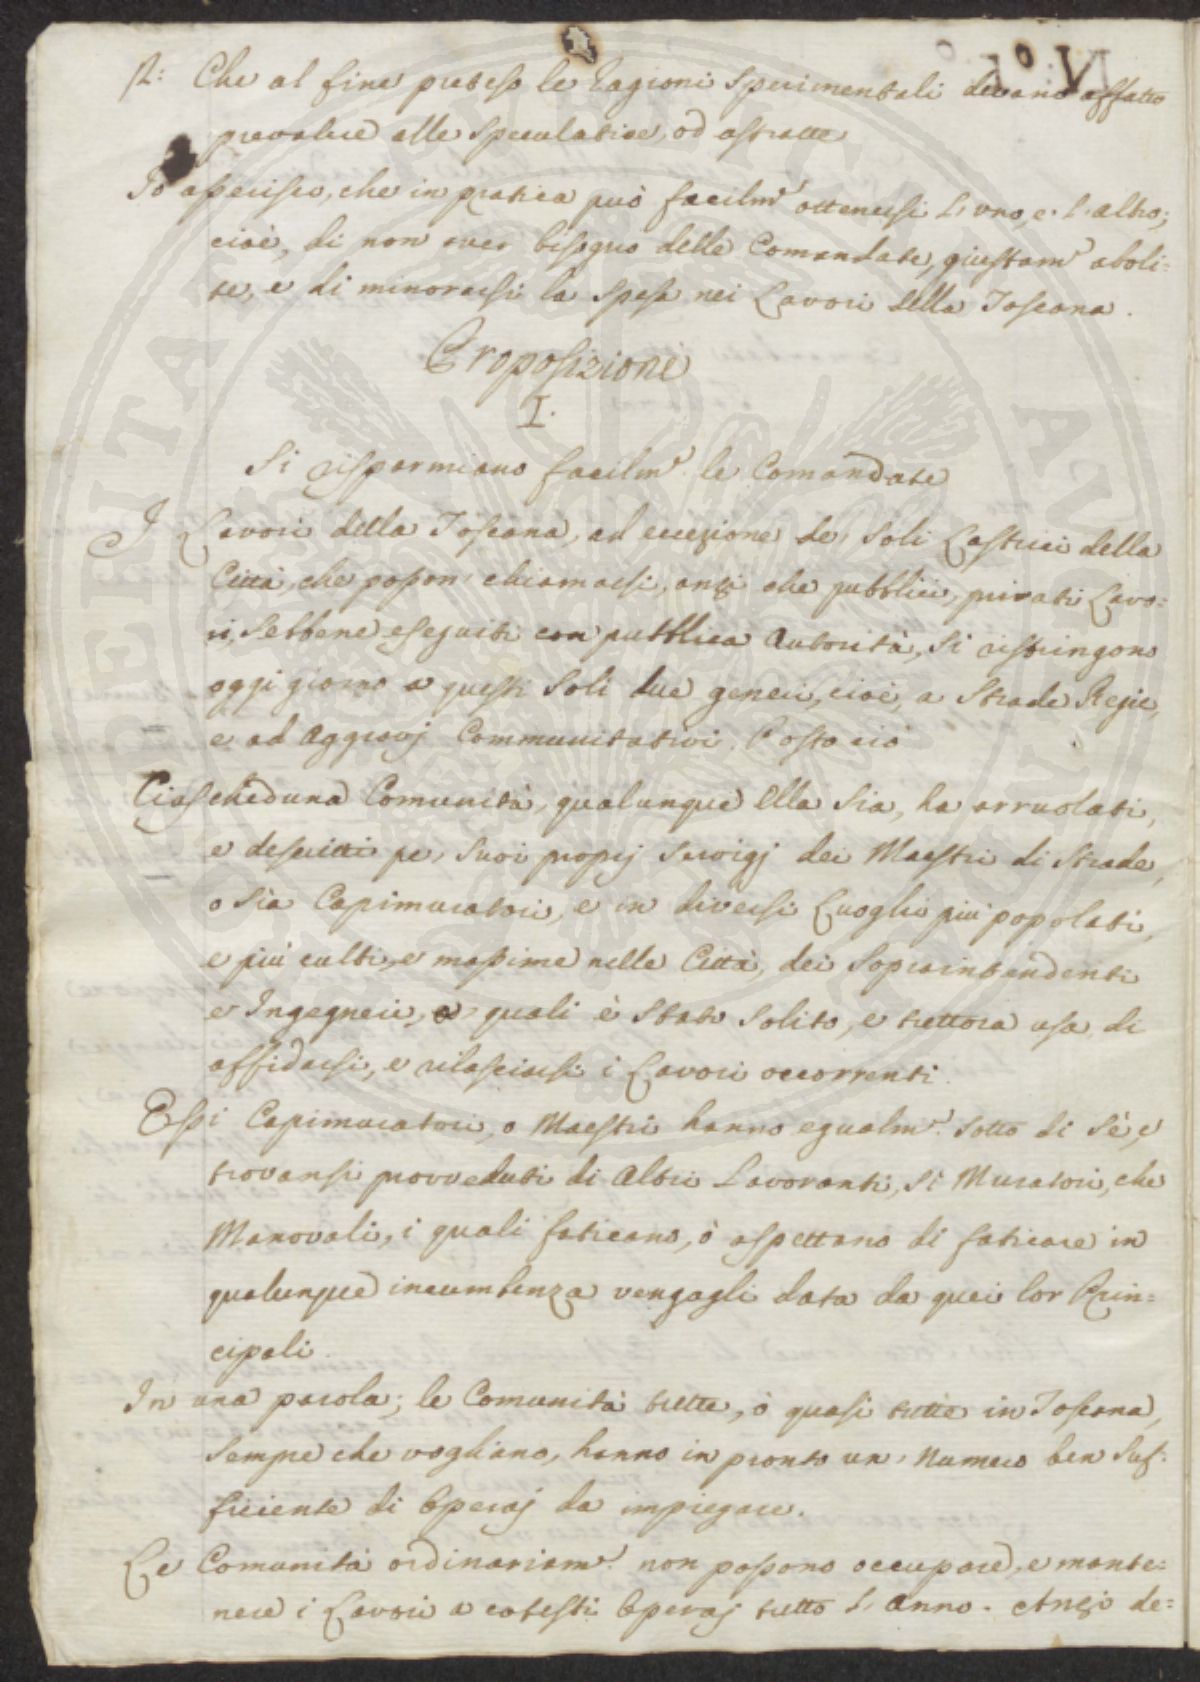 2: Che al fine preteso le Ragioni sperimentali devano affatto
prevalere alle speculative, od astratte
Io asserisco, che in pratica può facilm.e ottenersi l'uno, e l'altro;
cioè, di non aver bisogno delle Comandate, giustam.e aboli=
te, e di minorarsi la spesa nei Lavori della Toscana.
Proposizione
I.
Si risparmiano facilm.e le Comandate
I Lavori della Toscana, ad eccezione de' soli Lastrici della
Città, che posson' chiamarsi, anzi che pubblici, privati Lavo=
ri, sebbene eseguiti con pubblica Autorità, si ristringono
oggi giorno a questi soli due generi, cioè, a Strade Regie,
e ad Aggravj Communitativi. Posto ciò
Ciascheduna Comunità, qualunque Ella sia, ha arruolati,
e descritti pe' suoi proprj servigj dei Maestri di Strade,
o sia Capimuratori, e in diversi Luoghi più popolati,
e più culti, e massime nelle Città, dei Soprintendenti
e Ingegneri, a' quali è stato solito, e tuttora usa di
affidarsi, e rilasciarsi i Lavori occorrenti.
Essi Capimuratori, o Maestri hanno egualm.e sotto di sè, e
trovansi provveduti di Altri Lavoranti, sì Muratori, che
Manovali, i quali faticano, ò aspettano di faticare in
qualunque incumbenza vengagli data da quei lor Prin=
cipali.
In una parola; le Comunità tutte, ò quasi tutte in Toscana,
sempre che vogliano, hanno in pronto un' Numero ben suf=
ficiente di Operaj da impiegare.
Le Comunità ordinariam.e non possono occupare, e mante=
nere i Lavori a cotesti Operaj tutto l'Anno. Anzi de=
N° VI
SERENITATI PUBLICAE AUGENDAE